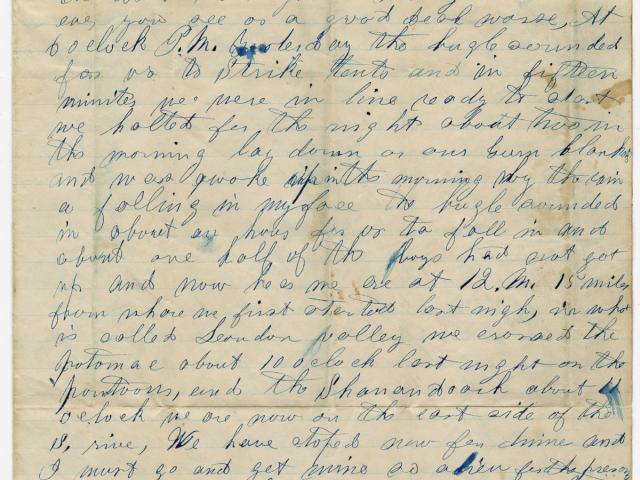 ever you see as a good deal worse, At
6 oclock P.M. Yesterday the bugle sounded
for us to strike tents and in fifteen
minites we were in line ready to start
we halted for the night about two in
the morning lay down on our gum blankets
and was awoke up in the morning by the rain
a falling in my face the bugle sounded
in about an hour for us to fall in and
about one half of the boys had not got
up and now hear we are at 12. M. 15 miles
from where we first started last nigh, in what
is called Loudon valley we crossed the
potomac about 10 oclock last night on the
pontoons, and the Shanandoah about 11
oclock we are now on the east side of the
S, rive, We have stoped now for dinner and
I must go and get mine so for the present